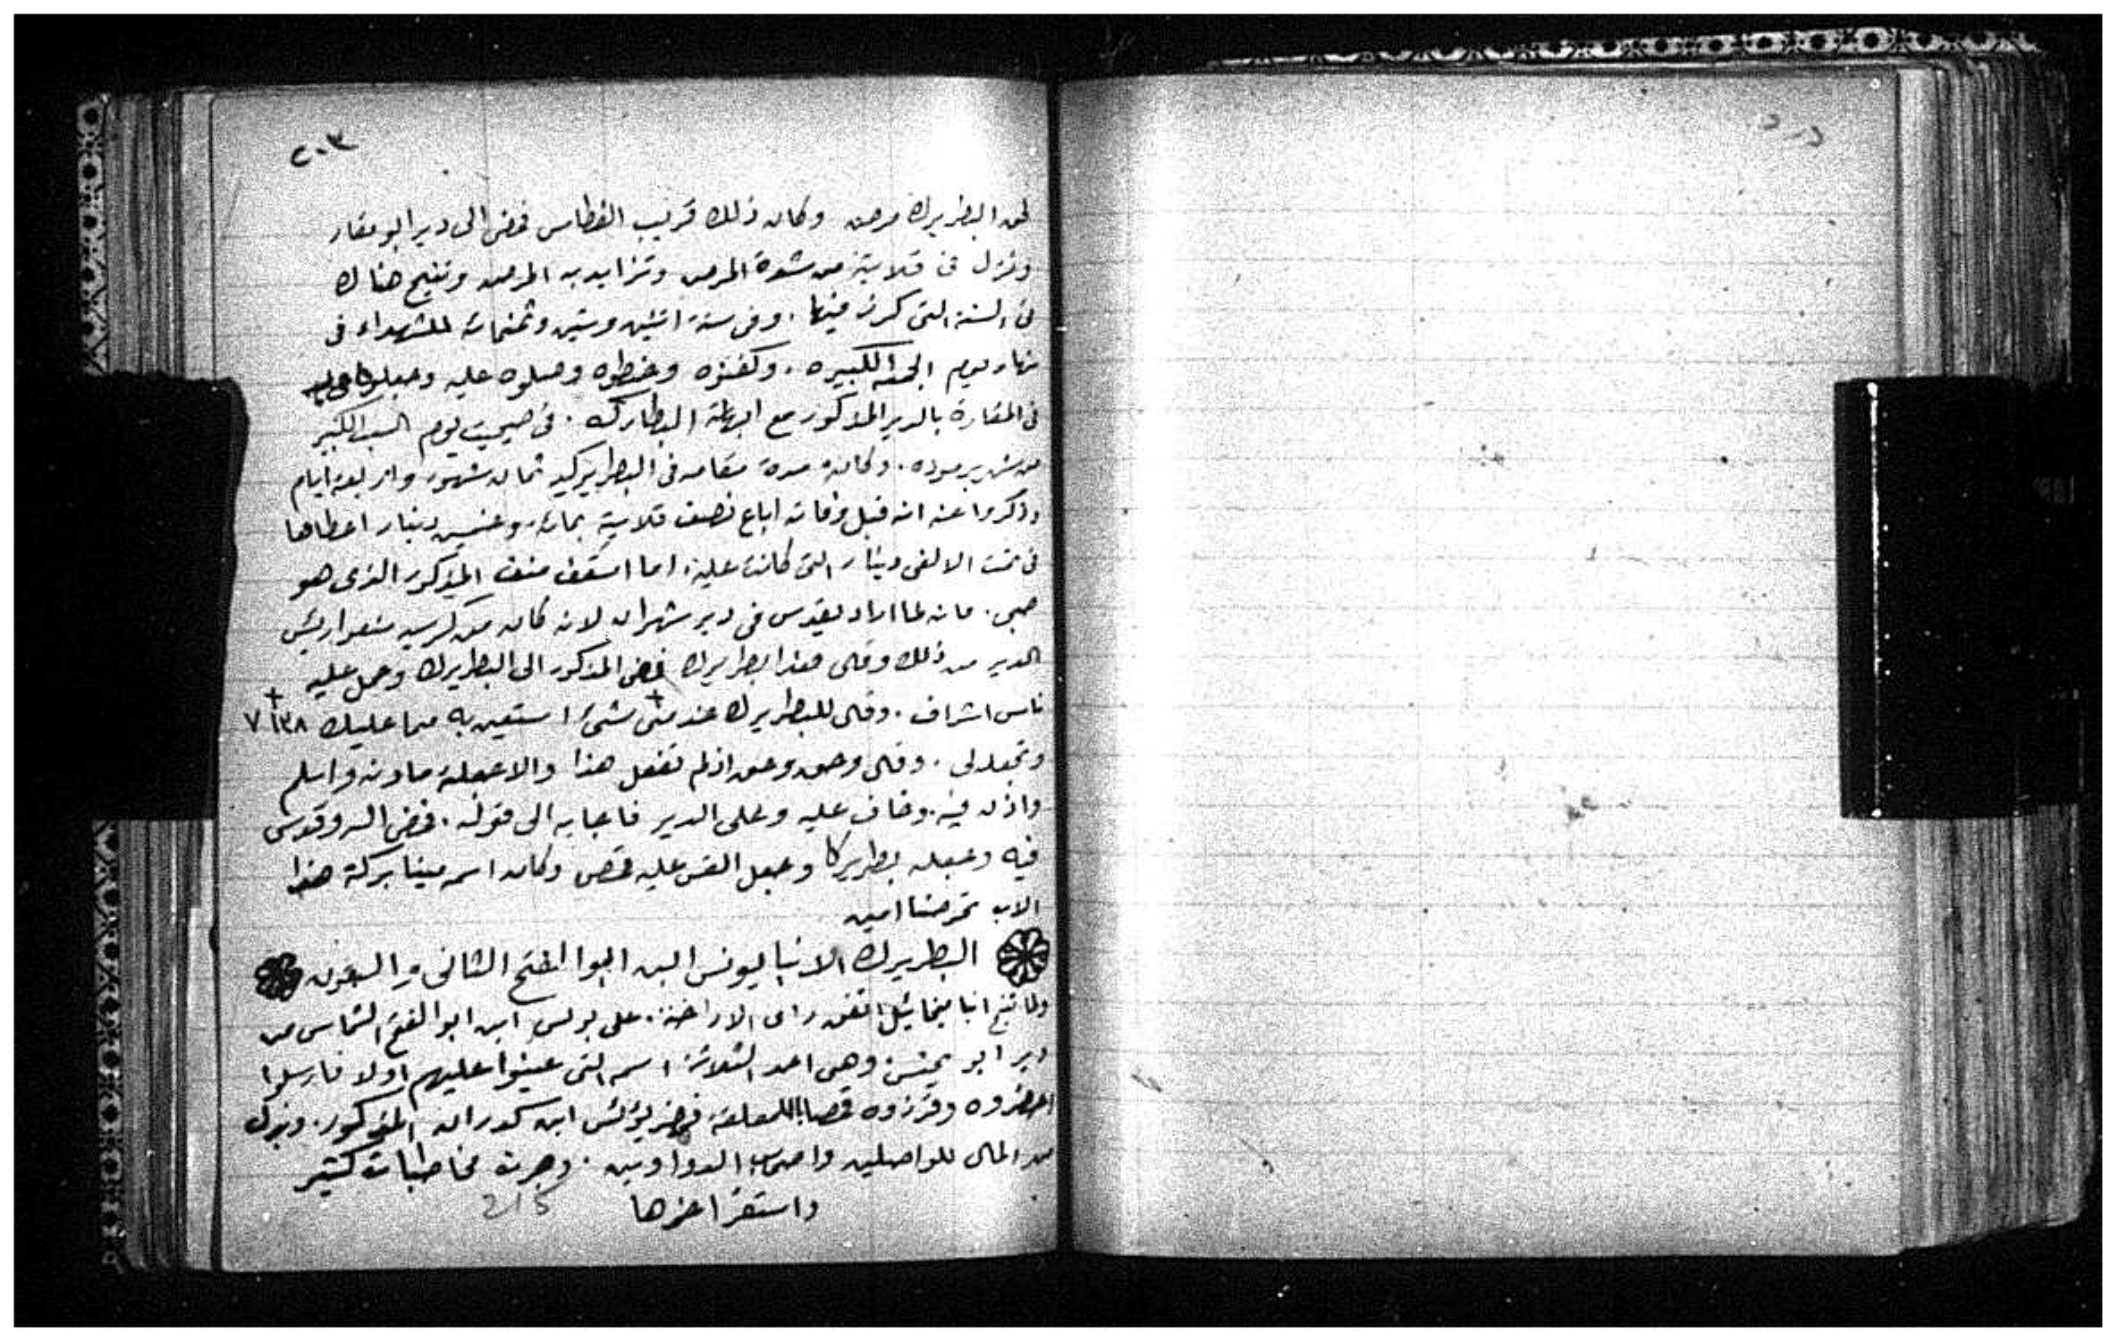 ٢٠٣
لحق البطريرك مرض وكان ذلك قريب الغطاس فمضى الى دير ابو مقار
ونزل فى قلايته من شدة المرض وتزايد به المرض وتنيح هناك
فى السنه التى كرز فيها . وفى سنة اثنين وستين وثمنمائة للشهداء فى
نهار يوم الجمعه الكبيره . وكفنوه وحنطوه وصلوه عليه وجعلوه
فى المغارة بالدير المذكور مع ابهاته البطاركه . فى صبحيت يوم السبت الكبير
من شهر برموده . وكانت مدة مقامه فى البطريركيه ثمان شهور واربعة ايام
وذكروا عنه انه قبل وفاته اباع نصف قلايته بمائة وخمسين دينار اعطاها
فى تمت الالفى دينار التى كانت عليه . اما اسقف منف المذكور الذى هو
صبى . فانه لما اراد يقدس فى دير شهران لانه كان من كرسيه منعوا ريس
الدير من ذلك وقال هذا بطريرك فمضى المذكور الى البطريرك وحمل عليه
ناس اشراف . وقال للبطريرك عند منى شئ استعين به مما عليك ١٣٨ ٧
وتجعله لى . وقال وحق وحق اذ لم تفعل هذا والا جعلته ماذنه واسلم
واذن فيه . وخاف عليه وعلى الدير فاجابه الى قوله . فمضى اليه وقدس
فيه وجعله بطريركا وجعل القس عليه قمص وكان اسمه مينا بركة هذا
الاب تحرسنا امين
البطريرك الانبا يونس ابن ابوا الفتح الثانى والسبعون
ولما تنيح انبا ميخائيل اتفق راى الاراخنه . على يونس ابن ابو الفتح الشماس من
دير ابو يحنس وهى احد الثلاثة اسم التى عينوا عليهم اولا فارسلوا
احضروه وقرزوه قمصا بالمعلقة فحضر يونس ابن كدران المذكور . وبذل
من المال للواصلين واصحاب الدواوين . وجرت مخاطبات كثير
واستقر اخرها
215